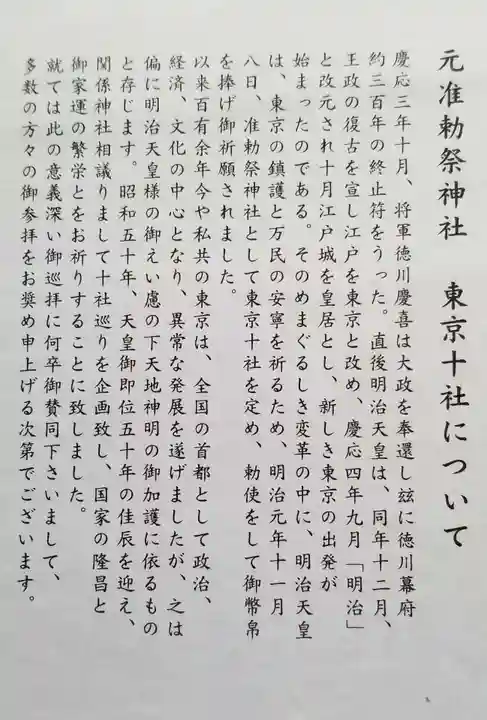 元准勅祭神社　東京十社について
慶応三年十月、将軍徳川慶喜は大政を奉還し玆に徳川幕府
約三百年の終止符をうった。直後明治天皇は、同年十二月、
王政の復古を宣し江戸を東京と改め、慶応四年九月「明治」
と改元され十月江戸城を皇居とし、新しき東京の出発が
始まったのである。そのめまぐるしき変革の中に、明治天皇
は、東京の鎮護と万民の安寧を祈るため、明治元年十一月
八日、准勅祭神社として東京十社を定め、勅使をして御幣帛
を捧げ御祈願されました。
以来百有余年今や私共の東京は、全国の首都として政治、
経済、文化の中心となり、異常な発展を遂げましたが、之は
偏に明治天皇様の御えい慮の下天地神明の御加護に依るもの
と存じます。昭和五十年、天皇御即位五十年の佳辰を迎え、
関係神社相議りまして十社巡りを企画致し、国家の隆昌と
御家運の繁栄とをお祈りすることに致しました。
就ては此の意義深い御巡拝に何卒御賛同下さいまして、
多数の方々の御参拝をお奨め申上げる次第でございます。